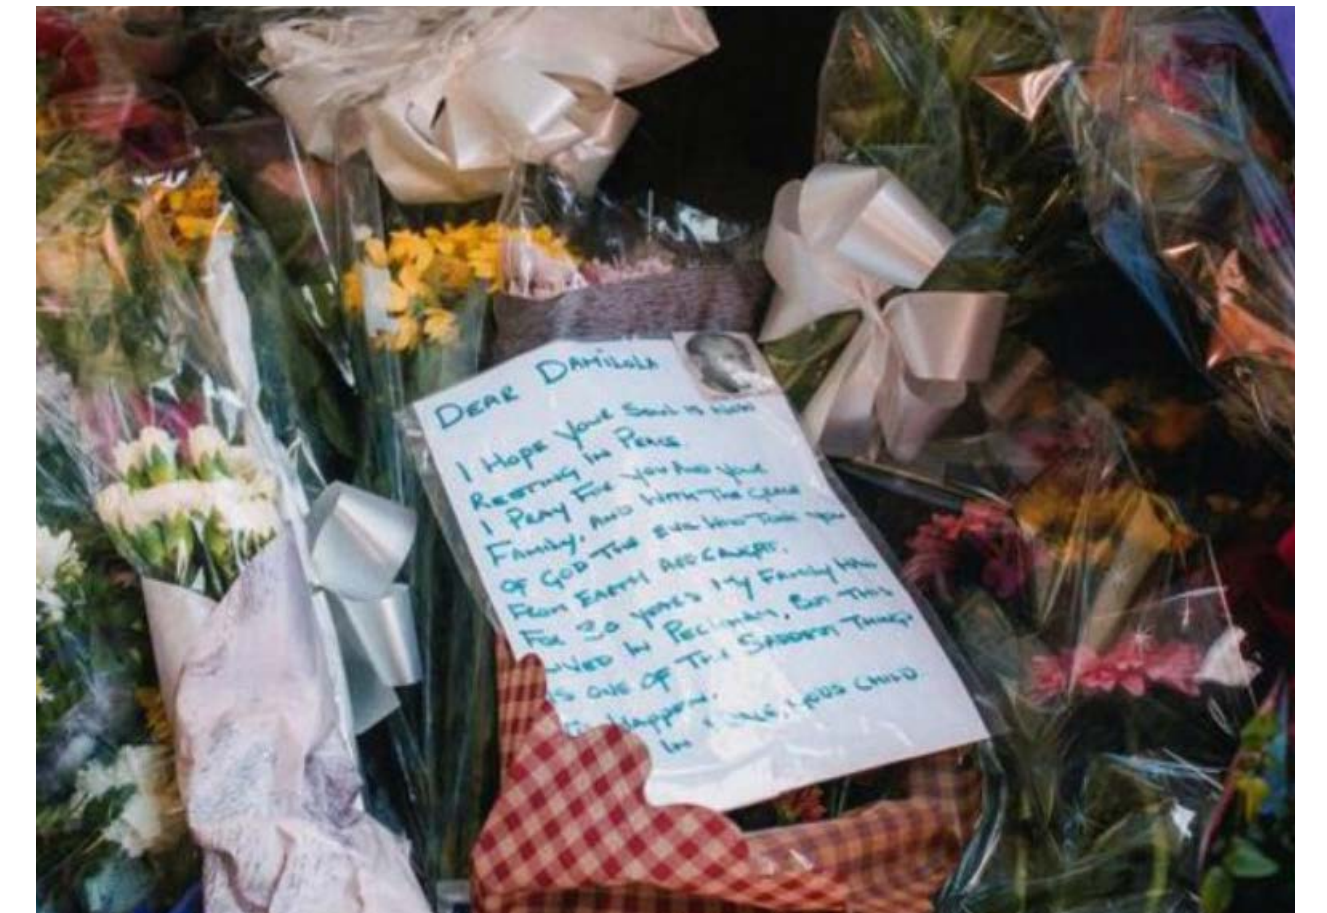 DEAR DAMILOLA
I HOPE YOUR SOUL IS NOW
RESTING IN PEACE.
I PRAY FOR YOU AND YOUR
FAMILY, AND WITH THE GRACE
OF GOD THE EVIL WHO TOOK YOU
FROM EARTH ARE CAUGHT.
FOR 20 YEARS MY FAMILY HAS
LIVED IN PECKHAM, BUT THIS
IS ONE OF THE SADDEST THINGS
HAPPEN.
IN CHILD